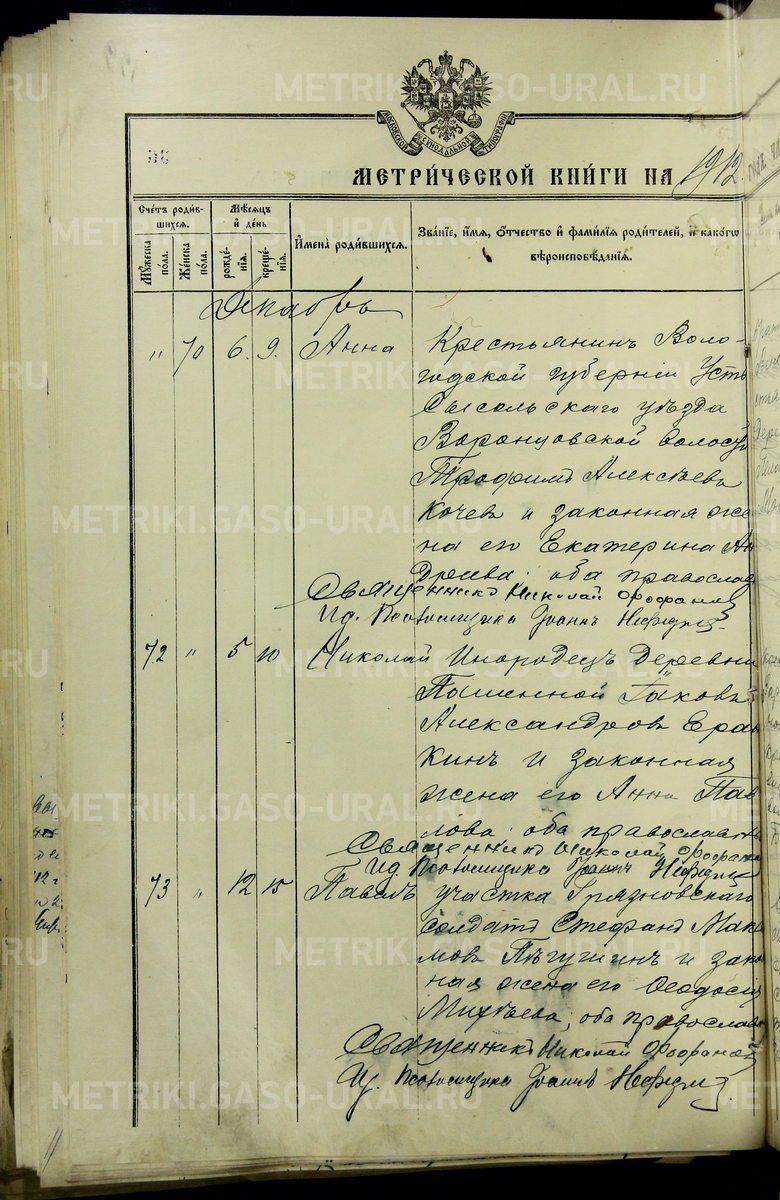 МОСКОВСКОЙ СУНОДАЛЬНОЙ ТИПОГРАФІИ
МЕТРИ́ЧЕСКОЙ КНИ́ГИ НА 1912
Сче́тъ роди́в-
шихся.
Мꙋ́жеска по́ла.
Же́нска по́ла.
Мѣ́сяцъ
и҆ де́нь
рожде́нїѧ.
креще́нїѧ.
И҆мена̀ роди́вшихся.
Зва́нїе, и҆́мѧ, ѻ҆́тчество и҆ фами́лїѧ роди́телей, и҆ како́гѡ
вѣроисповѣ́данїѧ.
Декабрь
" 70 6. 9. Анна Крестьянинъ Воло-
годской губерніи Усть
Сысольскаго уѣзда
Воронцовской волости
Трофимъ Алексѣевъ
Кочев и законная же
на его Екатерина Ан
дреева: оба православ
Священникъ Николай
Ид. Псаломщика Іоаннъ
72 " 5 10 Николай Инородецъ деревни
Пашенной Іаковъ
Александров Ера
кинъ и законная
жена его Анна Пав
лова: оба православн
Священникъ Николай
Ид. Псаломщика Іоаннъ
73 " 12 15 Павелъ участка Грязновскаго
солдатъ Стефанъ Макс
мов Пѣтушинъ и закон
ная жена его Ѳеодосія
Михѣева; оба православ
Священникъ Николай
Ид. Псаломщика Іоаннъ
METRIKI.GASO-URAL.RU